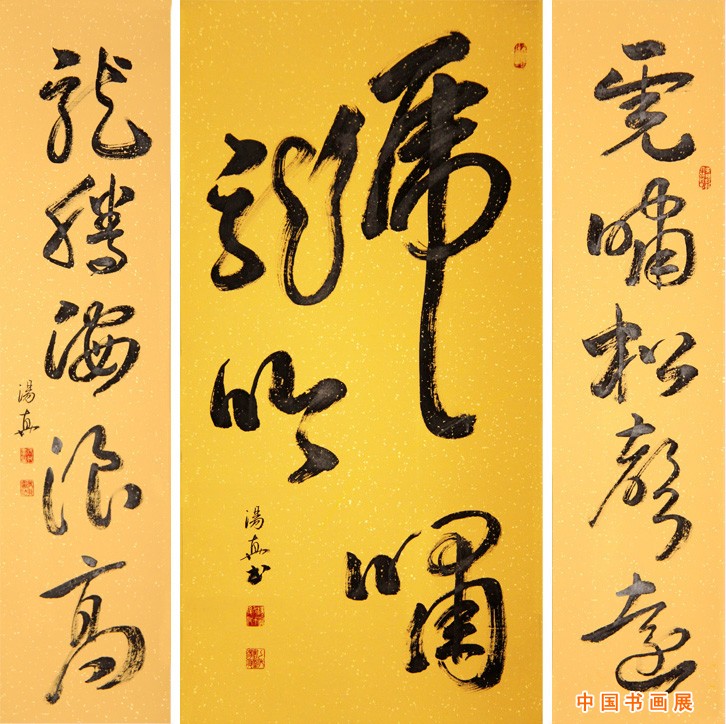 虎啸松声远
虎啸
龙吟
湯真书
龙腾海浪高
湯真
中国书画展